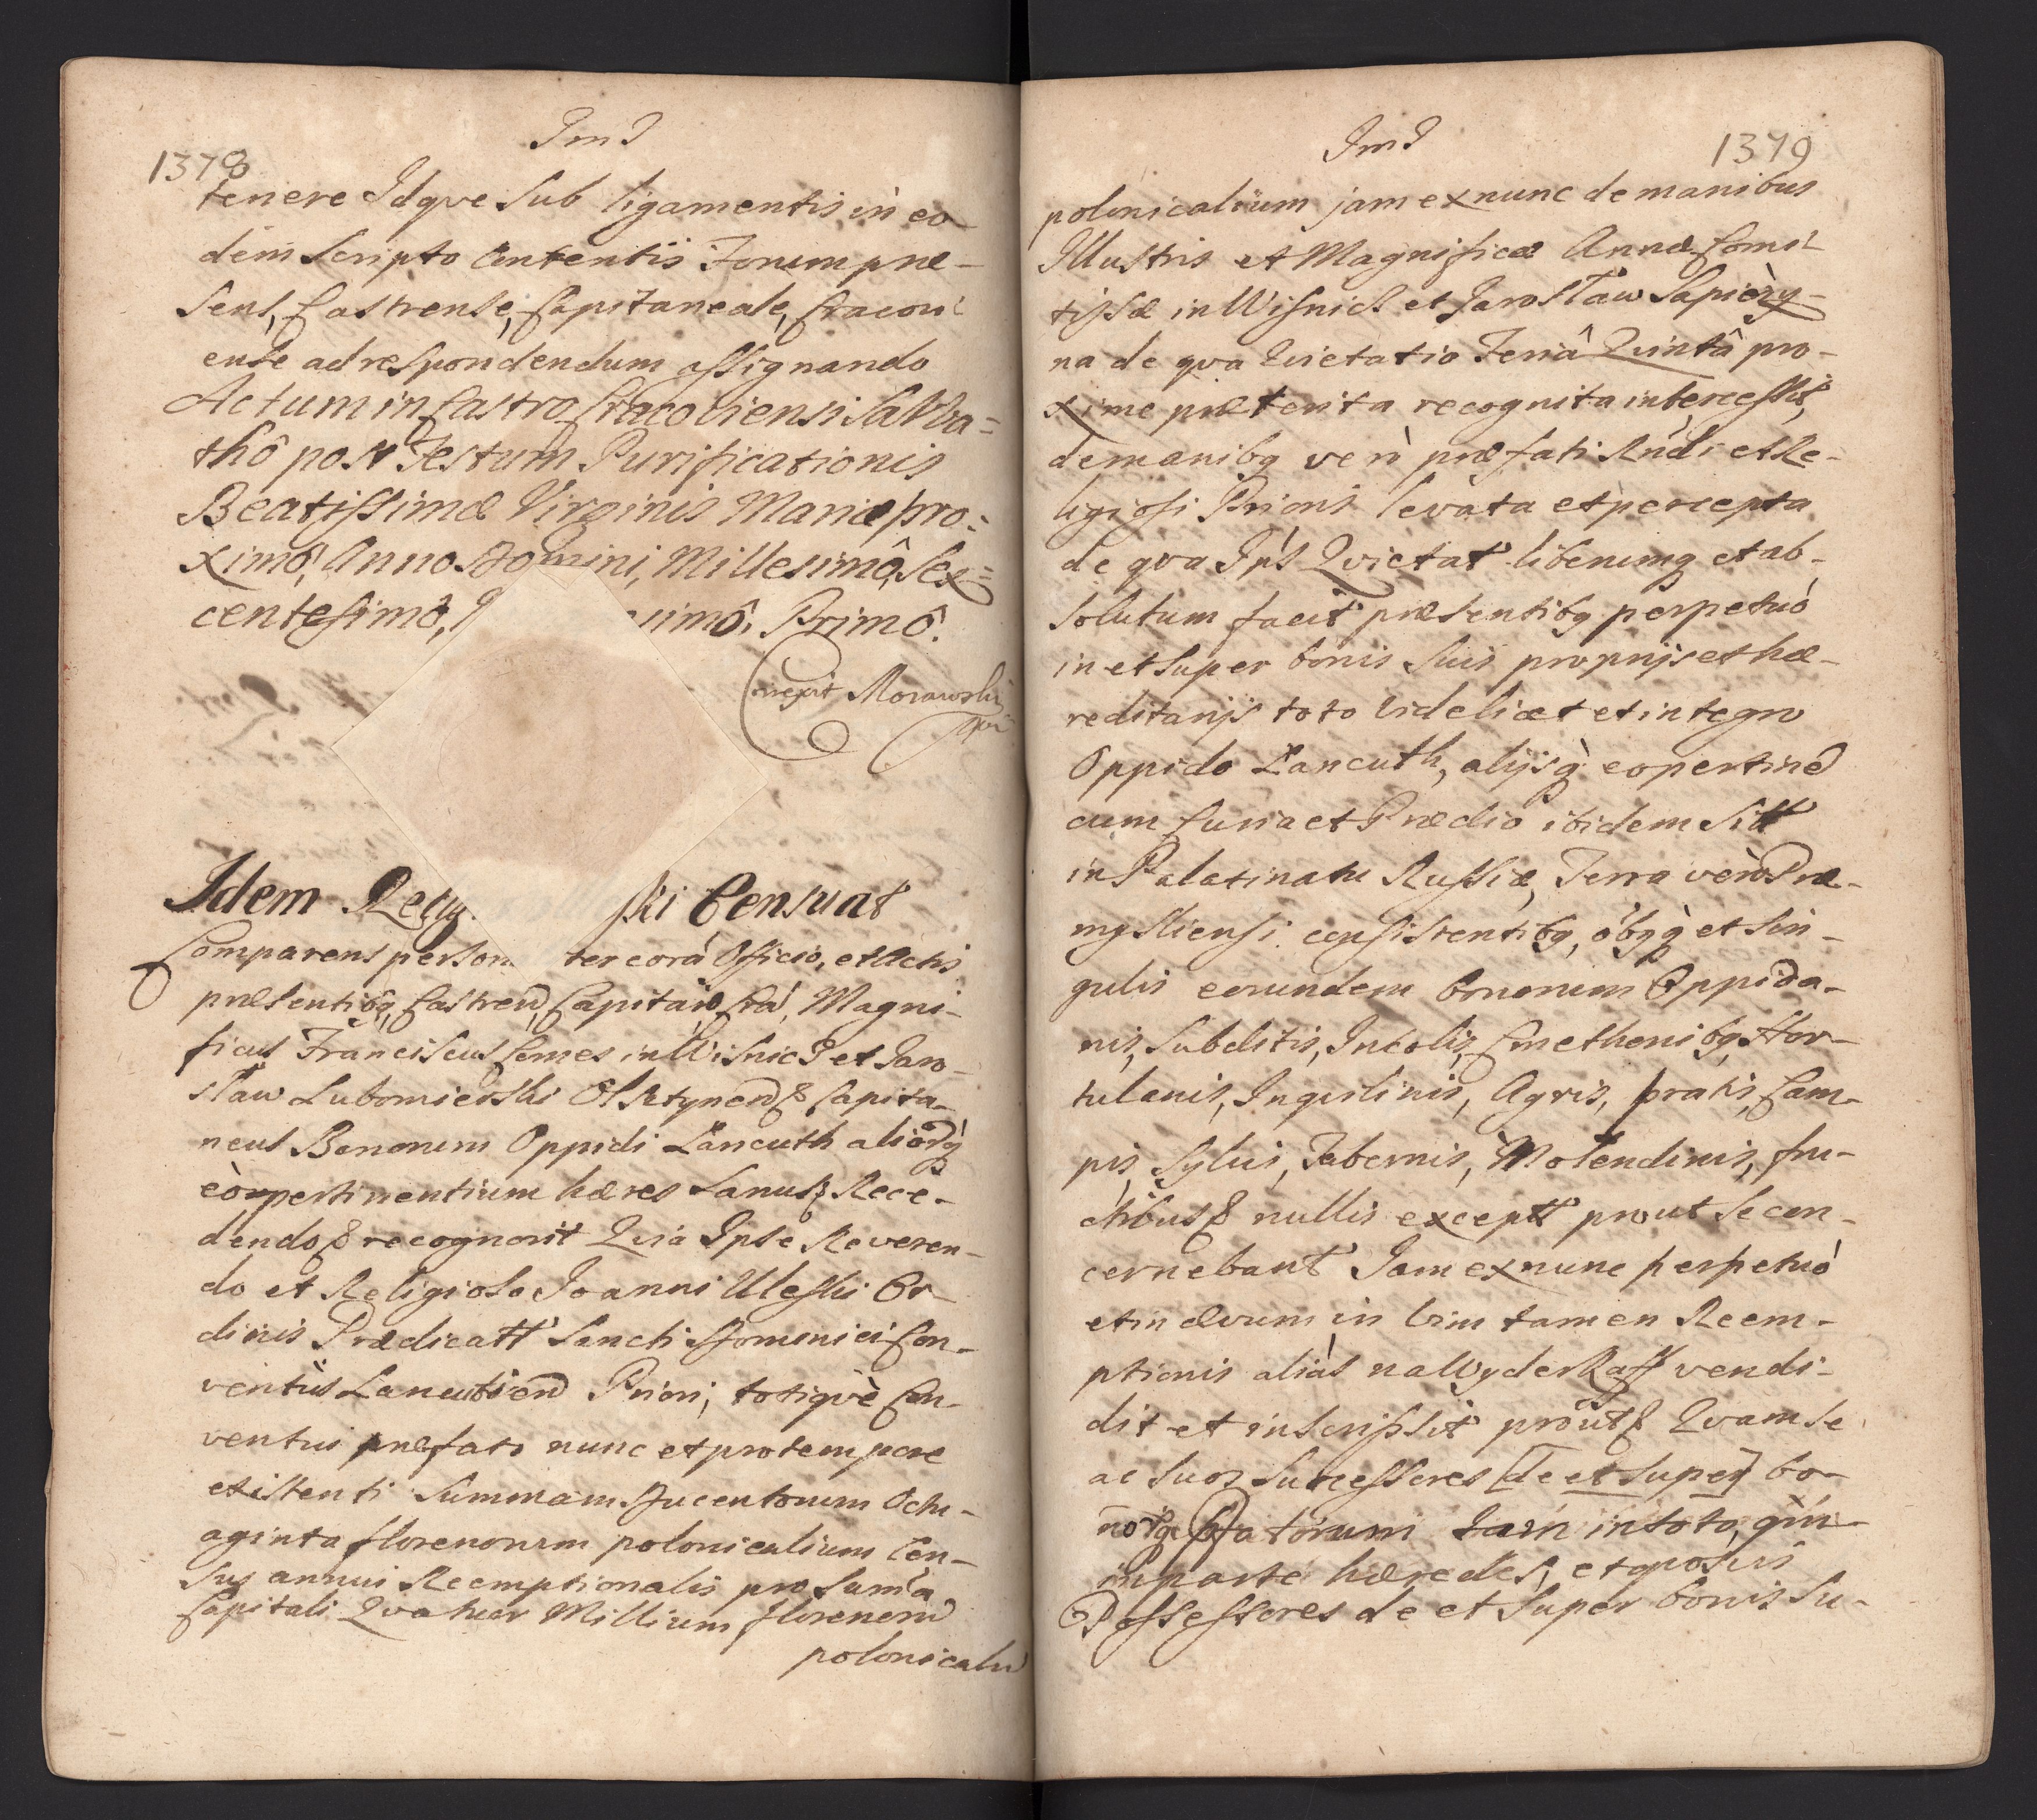 1378
tenere Idqve Sub ligamentis in eo-
dem Scripto Contentis Forum præ-
sens, Castrense, Capitaneale, Cracovi-
ense ad respondendum assignando
Actum in Castro Cracoviensi Sabba=
thô post Festum Purificationis
Beatissimæ Virginis Mariæ pro:
ximô, Anno Domini, Millesimô, Sex=
centesimô, simô. Primô.
Correxit Morawski
Idem ski Censuat
Comparens person ter corá Officio, et Actis
præsentibq, Castren, Capitan, Cra, Magni-
ficus Franciscus Comes in Wisnicz et Jaro-
sław Lubomierski Olsztynen & Capita-
neus Bonorum Oppidi Łancuth aliorq
eopertinentium hæres Sanus & Rece-
dendo & recognovit Qvia Ipse Reveren-
do et Religioso Joanni Uleski Or-
dinis Prædicatt Sancti Dominici Con-
ventûs Lancutien Priori, totiqvè Con-
ventui præfato nunc et pro tempore
existenti Summam Ducentorum Octu-
aginta florenorum polonicalium Cen-
sus annui Reemptionalis pro Summa
Capitali Qvatuor Millium florenoru
polonicaliu
1379
polonicalium jam exnunc de manibus
Illustris et Magnificæ Annæ Comi-
tissæ in Wisnicz et Jarosław Sapiezy-
na de qva Qvietatio Feriâ Qvintâ pro-
xime præterita recognita intercessit,
de manibq verò præfati Rndi et Re-
ligiosi Prioris levata et percepta
de qva Ips Qvietat liberumq et ab-
solutum facit præsentibq perpetuò
in et super bonis suis proprijs et hæ-
reditarijs toto videlicet et integro
Oppido Łancuth, alijsq eopertinen
cum Curia et Prædio ibidem Sitt
in Palatinatu Russiæ, Terra verò Præ-
mysliensi consistentibq, obqq et Sin-
gulis eorundem bonorum Oppida-
nis, Subditis, Incolis, Cmethonibq, Hor-
tulanis, Inqvilinis, Agris, pratis, Cam-
pis, Sylvis, Tabernis, Molendinis, fru-
ctibus & nullis exceptt prout Se con-
cernebant Jam exnunc perpetuò
et in ævum in vim tamen Reem-
ptionis aliàs na Wyderkaff vendi-
dit et inscripsit prout & Qvam se
ac suos Successores [de et super] bo-
norq tatorum tam in toto, qùm
in parte hæredes, et qvosvis
Possessores de et super bonis Su-